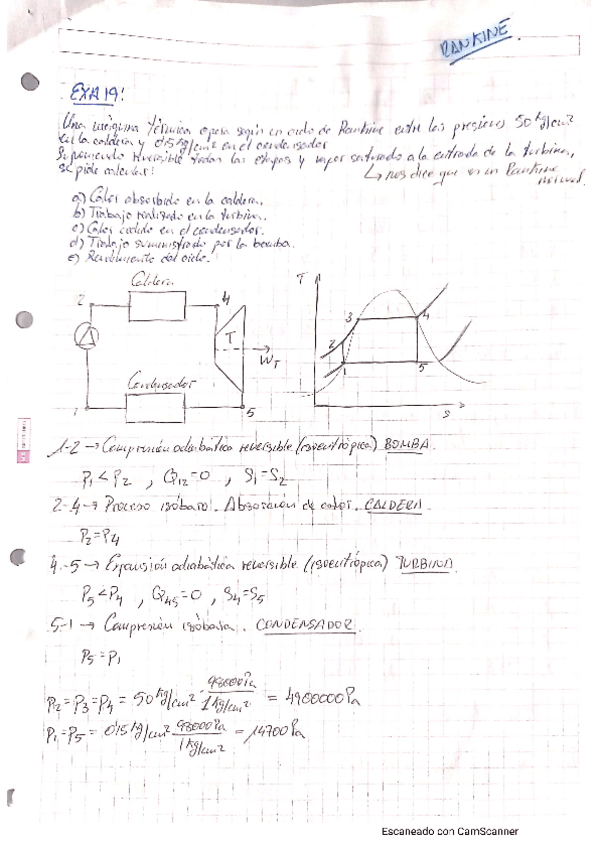 RANKINE
EXA 19:
Una máquina térmica opera según un ciclo de Rankine entre las presiones 50 kg/cm²
en la caldera y 0'15 kg/cm² en el condensador
Suponiendo reversible todas las etapas y vapor saturado a la entrada de la turbina,
se pide calcular:
↳ nos dice que es un Rankine
normal.
a) Calor absorbido en la caldera.
b) Trabajo realizado en la turbina.
c) Calor cedido en el condensador.
d) Trabajo suministrado por la bomba.
e) Rendimiento del ciclo.
Caldera
2
4
T
W_T
Condensador
1
5
T
3
4
2
1
5
s
1-2 → Compresión adiabática reversible (isoentrópica) BOMBA.
P₁ < P₂ , Q₁₂=0 , S₁=S₂
2-4 → Proceso isóbaro. Absorción de calor. CALDERA
P₂=P₄
4-5 → Expansión adiabática reversible (isoentrópica) TURBINA
P₅<P₄ , Q₄₅=0 , S₄=S₅
5-1 → Compresión isóbara. CONDENSADOR.
P₅=P₁
P₂=P₃=P₄ = 50 kg/cm² · 98000Pa / 1kg/cm² = 4900000Pa
P₁=P₅ = 0'15 kg/cm² 98000Pa / 1kg/cm² = 14700Pa
Escaneado con CamScanner